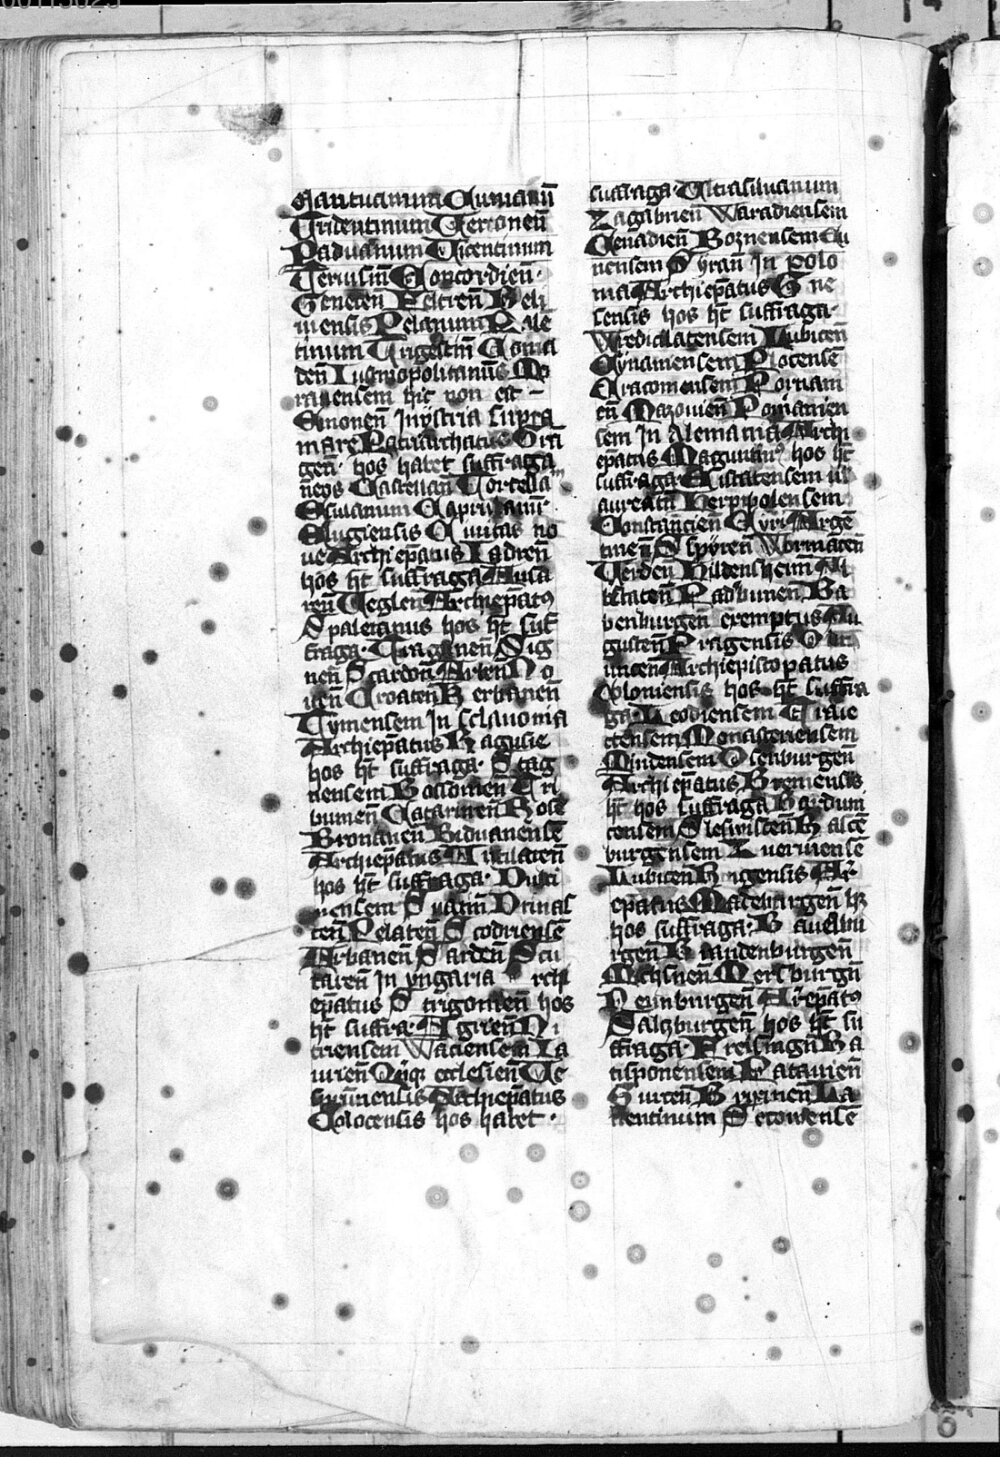 Mantuanum Cumanū
Tridentinum Veronen̄
Paduanum Vicentinum
Teruisin̄ Concordien̄·
Ceneten̄ Feltren̄ Bellu
nensis Polanum Paren
tinum Trigestin̄ Coma
den̄ Iustinopolitanūs
rauensem hic non est –
Emonen̄ Inystria supra
mare Patriarchatus Gra
gen̄· hos habet suffraga
neos Castellan̄ Torcella
Equilanum Caprulanū·
Clugiensis Ciuitas no
ue Archiepatus Iadren̄
hos ht̄ suffraga· Ausa
ren̄ Veglen̄ Archiepatus
Spaletanus hos ht̄ suf
fraga· Tragunen̄ Sig
nen̄ Scardon̄ Arben̄ No
nen̄ Croaten̄
Tymensem In sclauonia
Archiepatus Ragusie
hos ht̄ suffraga· Stag
nensem Tri
bunien̄ Catarinen̄ Rose
Bronauen̄ Biduanensē
Archiepatus Antibaren̄
hos ht̄ suffraga· Dulci
nensem Suatin̄ Driuas
ten̄ Polaten̄ Scodriensē
Arbanen̄ Sarden̄ Scu
taren̄ In yngaria Archi
epatus Strigonien̄ hos
ht̄ suffra· Agrien̄ Ni
triensem Waciensem Ia
uiren̄ Quīque ecclesien̄ Ve
spriniensis Archiepatus
Colocensis hos habet·
suffraga· Ultrasiluanum
Zagabrien̄ Waradiensem
Cenadien̄ Boznensem
nensem Syran̄ In Polo
nia Archiepatus Gne
sensis hos ht̄ suffraga·
Wredislatensem Lubucen̄
Cynamensem Plocensē
Cracouiensem Poznani
en̄ Mazouien̄ Pomanien
sem In Alemania Archi
epatus Maguntin hos ht̄
suffraga· Eistatensem
Herpipolensem
Constancien̄ Cyri Argē
tinen̄ Spyren̄ Wormacen̄
Verden̄ Hildenshein̄
Padbunen̄ Ba
benburgen̄ exemptus Au
gusten̄ Pragensis
Archiepiscopatus
Coloniensis hos ht̄ suffra
ga· Leodiensem Traie
ctensem Monasteriensem
Mindensem Osenburgen̄
Archiepatus Bremensis
ht̄ hos suffraga Bardum
censem Sleswicen̄ Racē
burgensem Zuerinensē
Lubicen̄ Rigensis Ar
epatus Madeburgen̄ hz
hos suffraga· Hauelbu
rgen̄ Brandenburgen̄
Michsnen̄ Mersburgn̄
Neunburgen̄ Arepatus
Salzburgen̄ hos ht̄ su
ffraga· Freisingn̄ Ra
tisponensem Patauien̄
Gurcen̄ Brixinen̄ La
uentinum Secouiensē